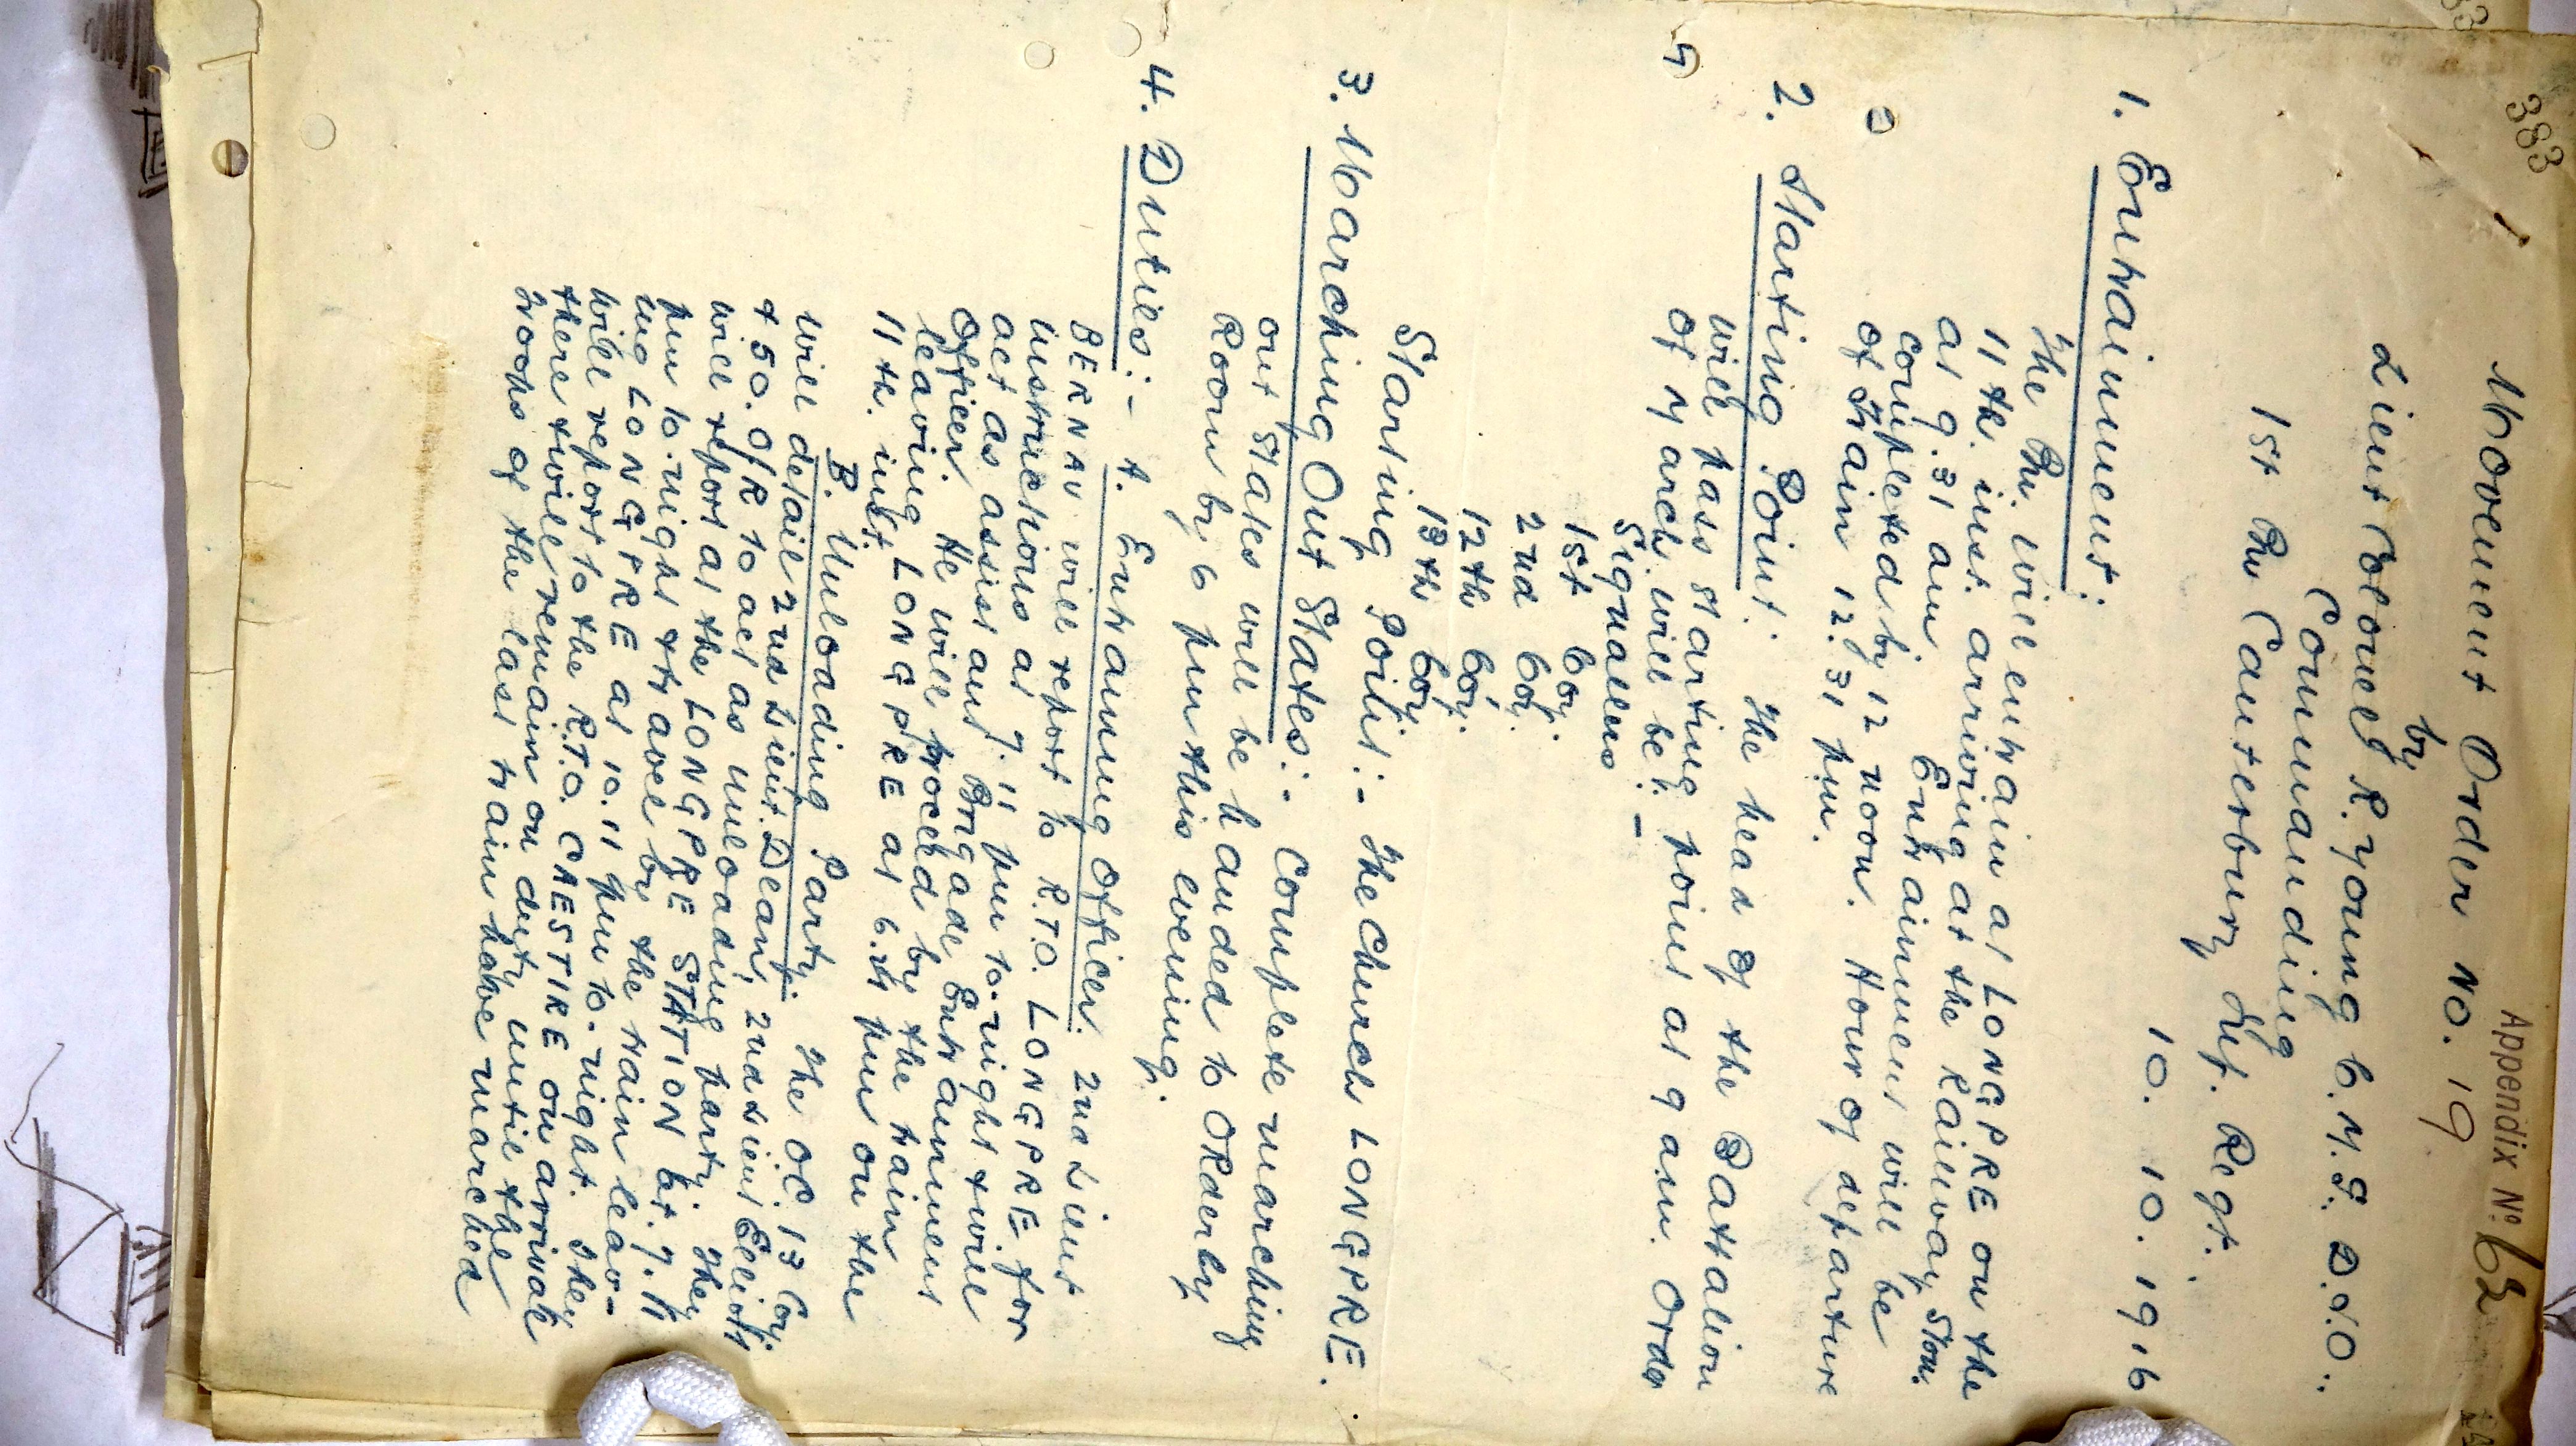 383
1
Appendix No. 62
Movement Order No. 19
by
Lieut Colonel R. Young C.M.G. D.S.O.
Commanding
1st Bn Canterbury Inf. Regt.
10. 10. 1916
1. Entrainment:
The Bn. will entrain at LONGPRE on the
11th inst. arriving at the Railway Stn.
at 9.31 am. Entrainment will be
completed by 12 noon. Hour of departure
of train 12.31 pm.
2. Starting Point: The head of the Battalion
will pass starting point at 9 am. Order
of March will be:-
Signallers
1st Coy.
2nd Coy.
12th Coy.
13th Coy.
Starting Point:- The Church LONGPRE.
3. Marching Out States:- Complete marching
out states will be handed to Orderly
Room by 6 pm this evening.
4. Duties:- A. Entraining Officer. 2nd Lieut
BERNAU will report to R.T.O. LONGPRE for
instructions at 7.11 pm to-night & will
act as assistant Brigade Entrainment
Officer. He will proceed by the train
leaving LONGPRE at 6.21 pm on the
11th. inst.
B. Unloading Party:- The OC 13 Coy.
will detail 2nd Lieut. Dean, 2nd Lieut Elliott
& 50. O/R to act as unloading party. They
will report at the LONGPRE STATION at 7.11
pm to-night & travel by the train leav-
ing LONGPRE at 10.11 pm to-night. They
will report to the R.T.O. CAESTIRE on arrival
there & will remain on duty until the
troops of the last train have marched